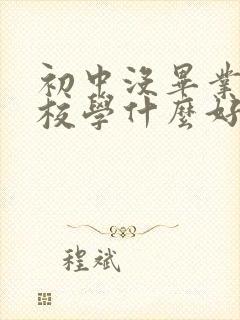 初中沒畢業
校學什麼好
程斌